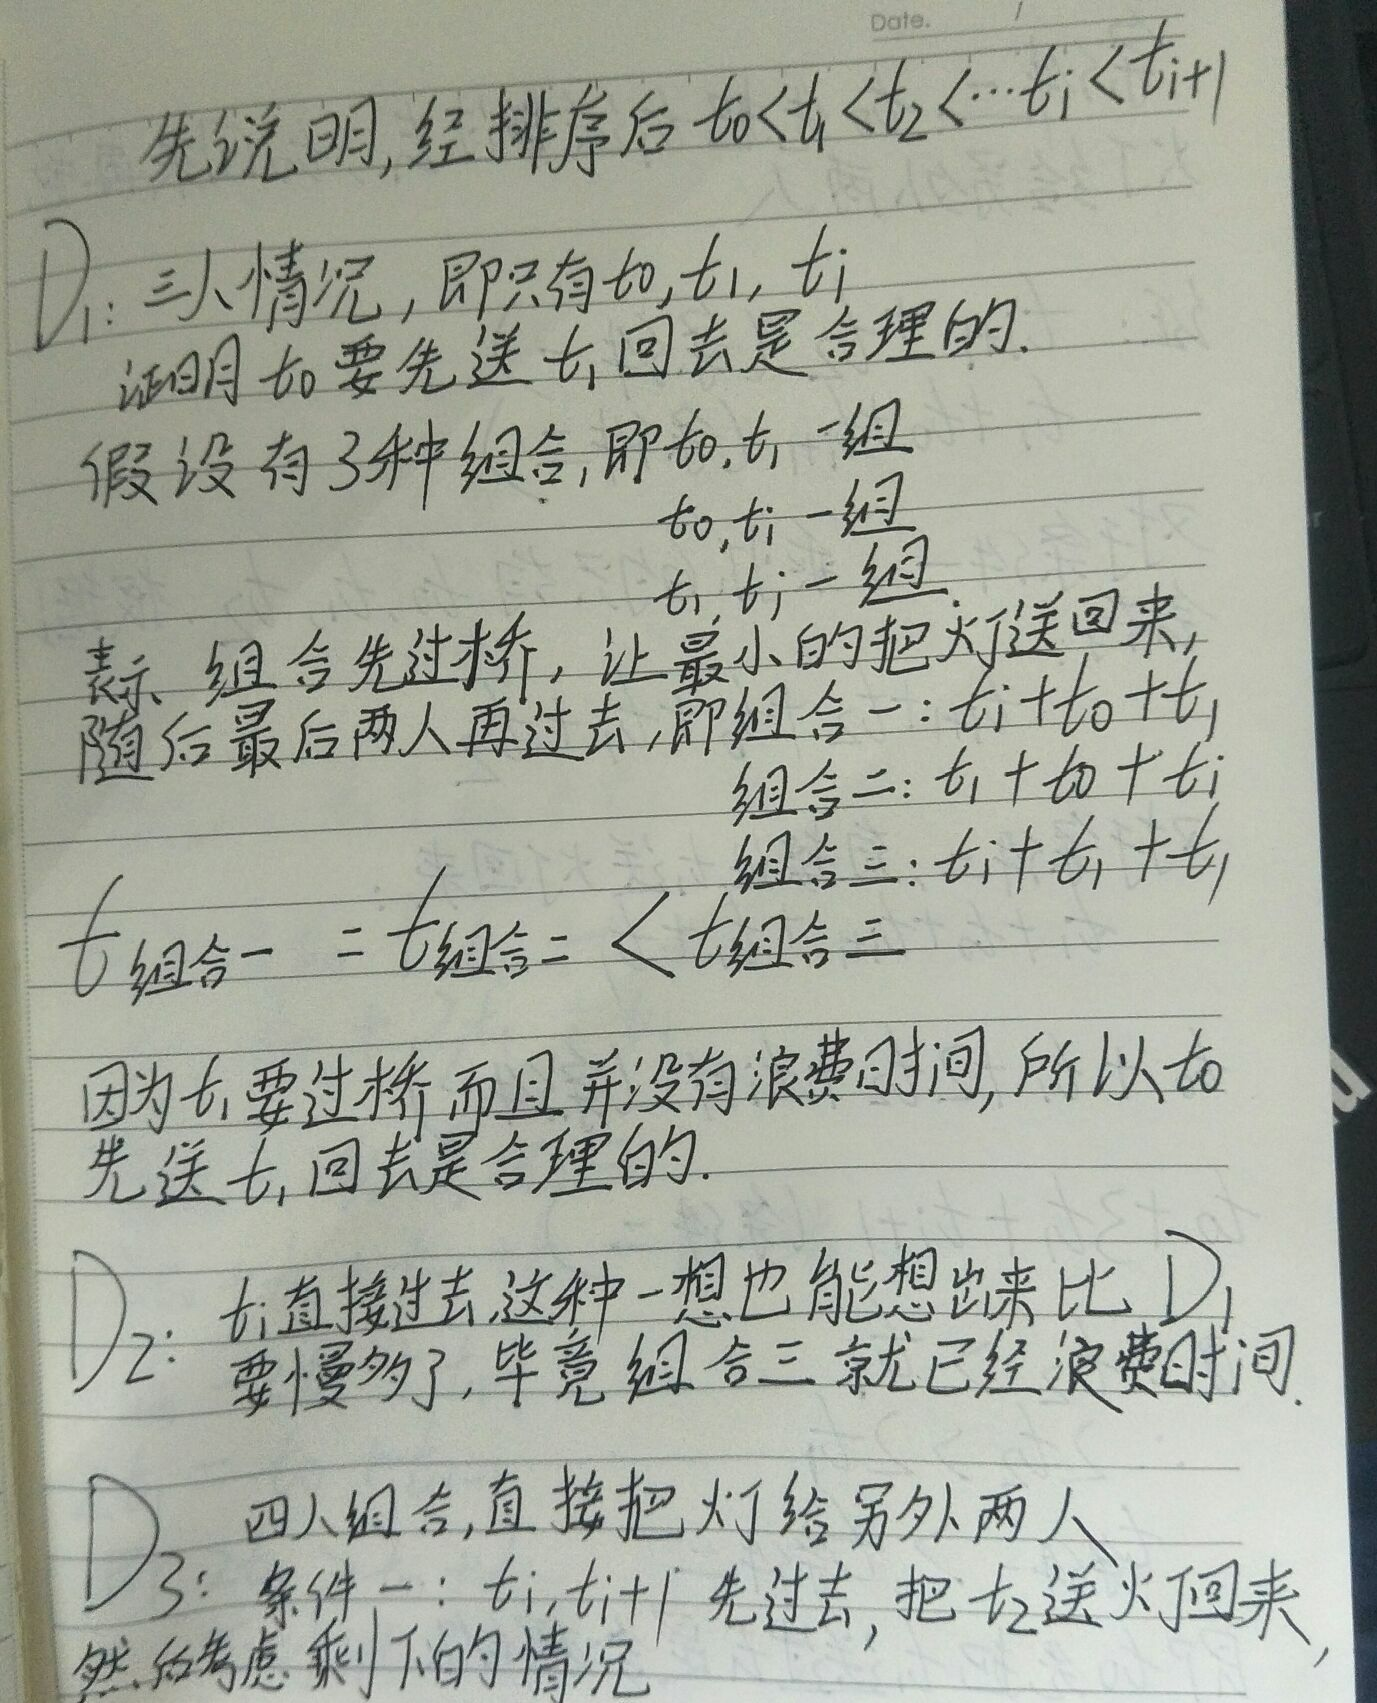 Date. /
先说明,经排序后 t0<t1<t2<…ti<ti+1
D1: 三人情况,即只有t0,t1, ti
证明 t0 要先送 t1 回去是合理的.
假设有3种组合,即t0,t1 一组
t0,ti 一组
t1,ti 一组
表示 组合先过桥,让最小的把灯送回来,
随后最后两人再过去,即组合一: ti+t0+t1
组合二: t1+t0+ti
组合三: ti+t1+t1
t组合一 = t组合二 < t组合三
因为t1要过桥而且并没有浪费时间,所以t0
先送 t1 回去是合理的.
D2: ti直接过去,这种一想也能想出来比 D1
要慢多了,毕竟组合三就已经浪费时间.
D3: 四人组合,直接把灯给另外两人
条件一: ti,ti+1 先过去,把t2送灯回来,
然后考虑剩下的情况